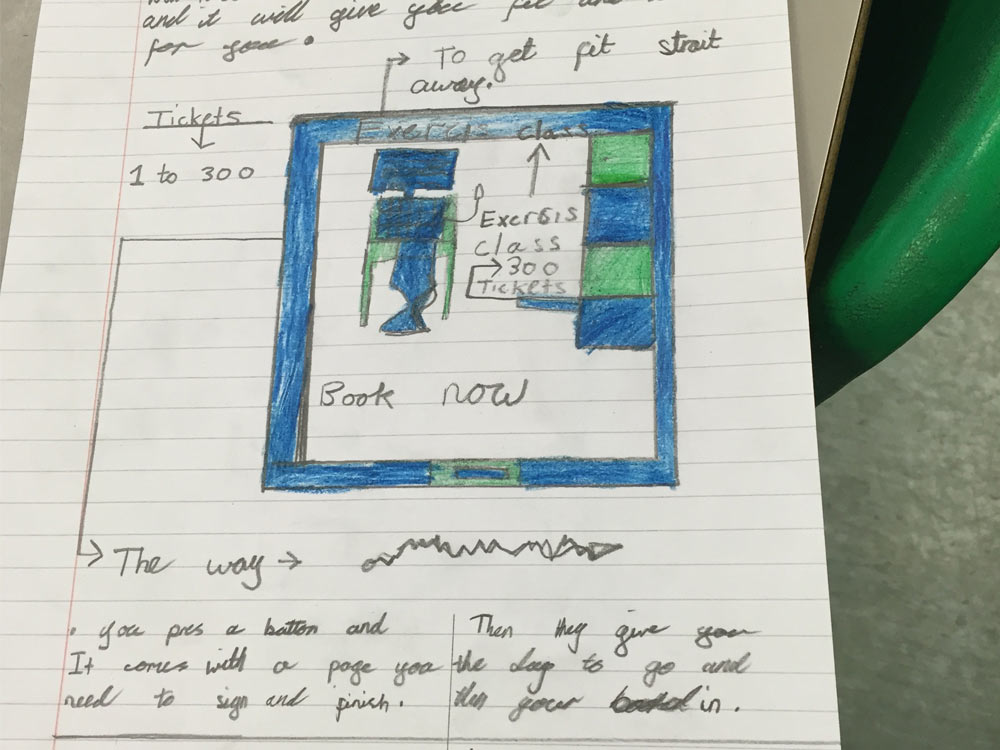 and it will give you fit and
for you.
To get fit strait
away.
Tickets
1 to 300
Exercis class
Exersis
class
300
Tickets
Book now
The way
. you pres a button and
It comes with a page you
need to sign and finish.
Then they give you
the day to go and
then your in.